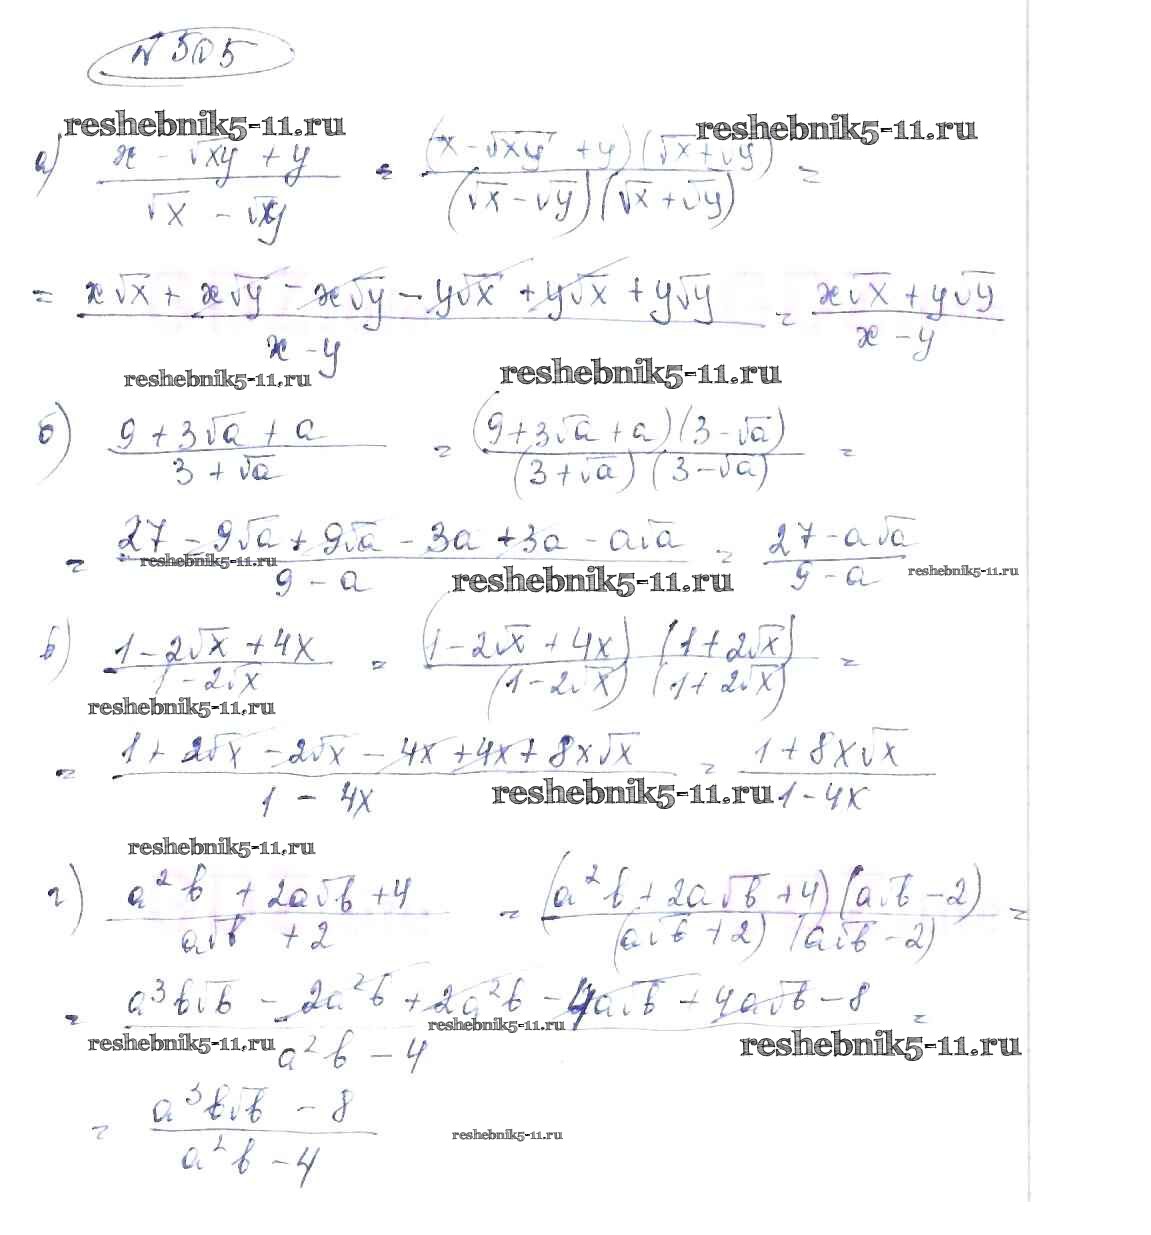 № 505
reshebnik5-11.ru reshebnik5-11.ru
а) (x - √xy + y)/(√x - √y) = ((x - √xy + y)(√x + √y))/((√x - √y)(√x + √y)) =
= (x√x + x√y - x√y - y√x + y√x + y√y)/(x - y) = (x√x + y√y)/(x - y)
reshebnik5-11.ru reshebnik5-11.ru
б) (9 + 3√a + a)/(3 + √a) = ((9 + 3√a + a)(3 - √a))/((3 + √a)(3 - √a)) =
= (27 - 9√a + 9√a - 3a + 3a - a√a)/(9 - a) = (27 - a√a)/(9 - a)
reshebnik5-11.ru reshebnik5-11.ru reshebnik5-11.ru
в) (1 - 2√x + 4x)/(1 - 2√x) = ((1 - 2√x + 4x)(1 + 2√x))/((1 - 2√x)(1 + 2√x)) =
reshebnik5-11.ru
= (1 + 2√x - 2√x - 4x + 4x + 8x√x)/(1 - 4x) = (1 + 8x√x)/(1 - 4x)
reshebnik5-11.ru
reshebnik5-11.ru
г) (a²b + 2a√b + 4)/(a√b + 2) = ((a²b + 2a√b + 4)(a√b - 2))/((a√b + 2)(a√b - 2)) =
= (a³b√b - 2a²b + 2a²b - 4a√b + 4a√b - 8)/(a²b - 4) =
reshebnik5-11.ru reshebnik5-11.ru reshebnik5-11.ru
= (a³b√b - 8)/(a²b - 4)
reshebnik5-11.ru